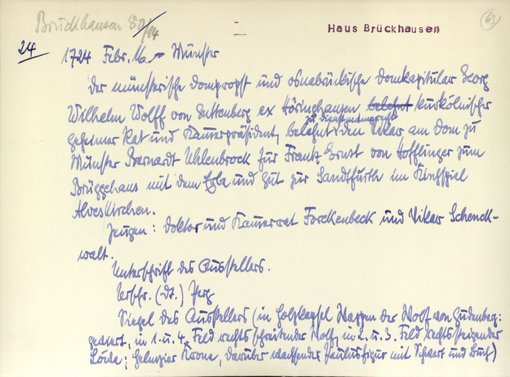 Bruckhausen 80/94
Haus Brückhausen
(62)
24
1724 Febr. 16 – Münster
Der münsterische Dompropst und osnabrückische Domkapitular Georg
Wilhelm Wolff von Guttenberg ex Höringhausen belehnt kurkölnischer
zu Dienstmannsrecht
geheimer Rat und Kammerpräsident, belehnt den Vikar am Dom zu
Münster Bernardt Uhlenbrock für Frantz Ernst von Hofflinger zum
Brüggehaus mit dem Erbe und Gut zur Landtfürth im Kirchspiel
Alverskirchen.
Zeugen: Doktor und Kammerrat Forckenbeck und Vikar Schenck-
walt.
Unterschrift des Ausstellers.
Urschr. (dt.) Perg
Siegel des Ausstellers (in Holzkapsel Wappen der Wolf von Gudenberg:
geviert, in 1. u. 4. Feld rechts schreitender Wolf, in 2. u. 3. Feld rechts steigender
Löwe; Helmzier Krone, darüber wachsender Paulusfigur mit Schwert und Buch)